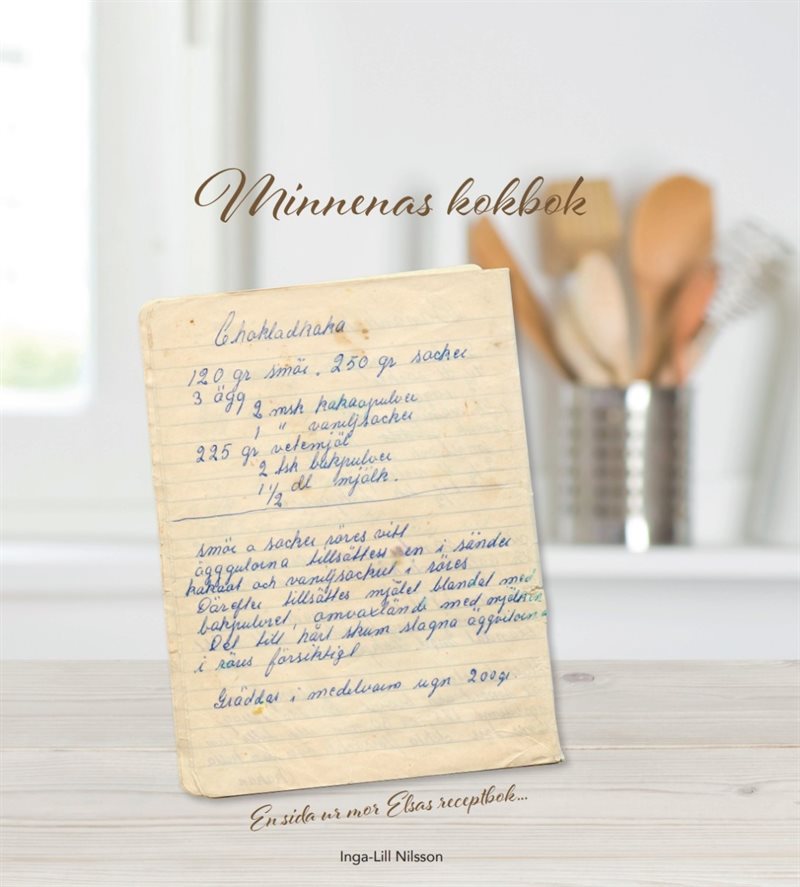 Minnenas kokbok
Chokladkaka
120 gr smör. 250 gr socker
3 ägg
2 msk kakaopulver
1 " vaniljsocker
225 gr vetemjöl
2 tsk bakpulver
1 1/2 dl mjölk.
smör o socker röres vitt
äggguloina tillsättes en i sänder
kakaot och vaniljsockret i röres
Därefter tillsättes mjölet blandat med
bakpulvret, omvaxlande med mjölken
Det till hårt skum slagna äggvitorna
i röres försiktigt
Gräddas i medelvarm ugn 200gr.
En sida ur mor Elsas receptbok...
Inga-Lill Nilsson